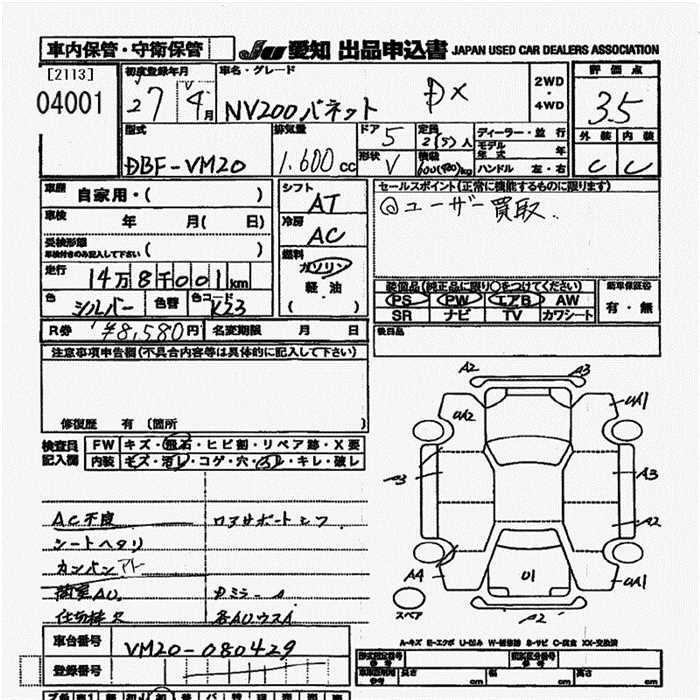 車内保管・守衛保管 JU 愛知 出品申込書 JAPAN USED CAR DEALERS ASSOCIATION
[2113] 初度登録年月 車名・グレード 2WD・4WD 評価点
04001 27 4月 NV200バネット DX 3.5
型式 排気量 ドア 5 定員 2(5)人 ディーラー・並行 外装 内装
モデル年式 年
DBF-VM20 1.600cc 形状 V 積載 kg ハンドル 左・右 C C
車歴 自家用・( ) シフト AT セールスポイント(正常に機能するものに限ります)
車検 年 月( 日) 冷房 AC ◎ユーザー買取.
受検形態 車検付きのみ記入して下さい ( ) 燃料 ガソリン
走行 14万8千001km 軽・油 装備品(純正品に限り○をつけてください) 新車保証書
色 シルバー 色替 色コード K23 ( ) PS PW エアB AW 有・無
SR ナビ TV カワシート
R券 ¥8,580円 名変期限 月 日 後日品
注意事項申告欄(不具合内容等は具体的に記入して下さい)
修復歴 有 (箇所 )
検査員記入欄 FW キズ・飛石・ヒビ割・リペア跡・X要
内装 キズ・汚レ・コゲ・穴・スレ・キレ・破レ
A2 A3
UA2 UA1
A3 A3
A2
A4 U1 UA1
スペア A2
AC不良 リアサポートシワ
シートヘタリ
カンバンアト
AU. DミラーA
仕切棒欠 各AUワスA
A-キズ E-エクボ U-凹み W-補修跡 S-サビ C-腐食 XX-交換済
車台番号 VM20-080429
登録番号
型式指定番号 類別区分番号
長さ cm 幅 cm 高さ cm